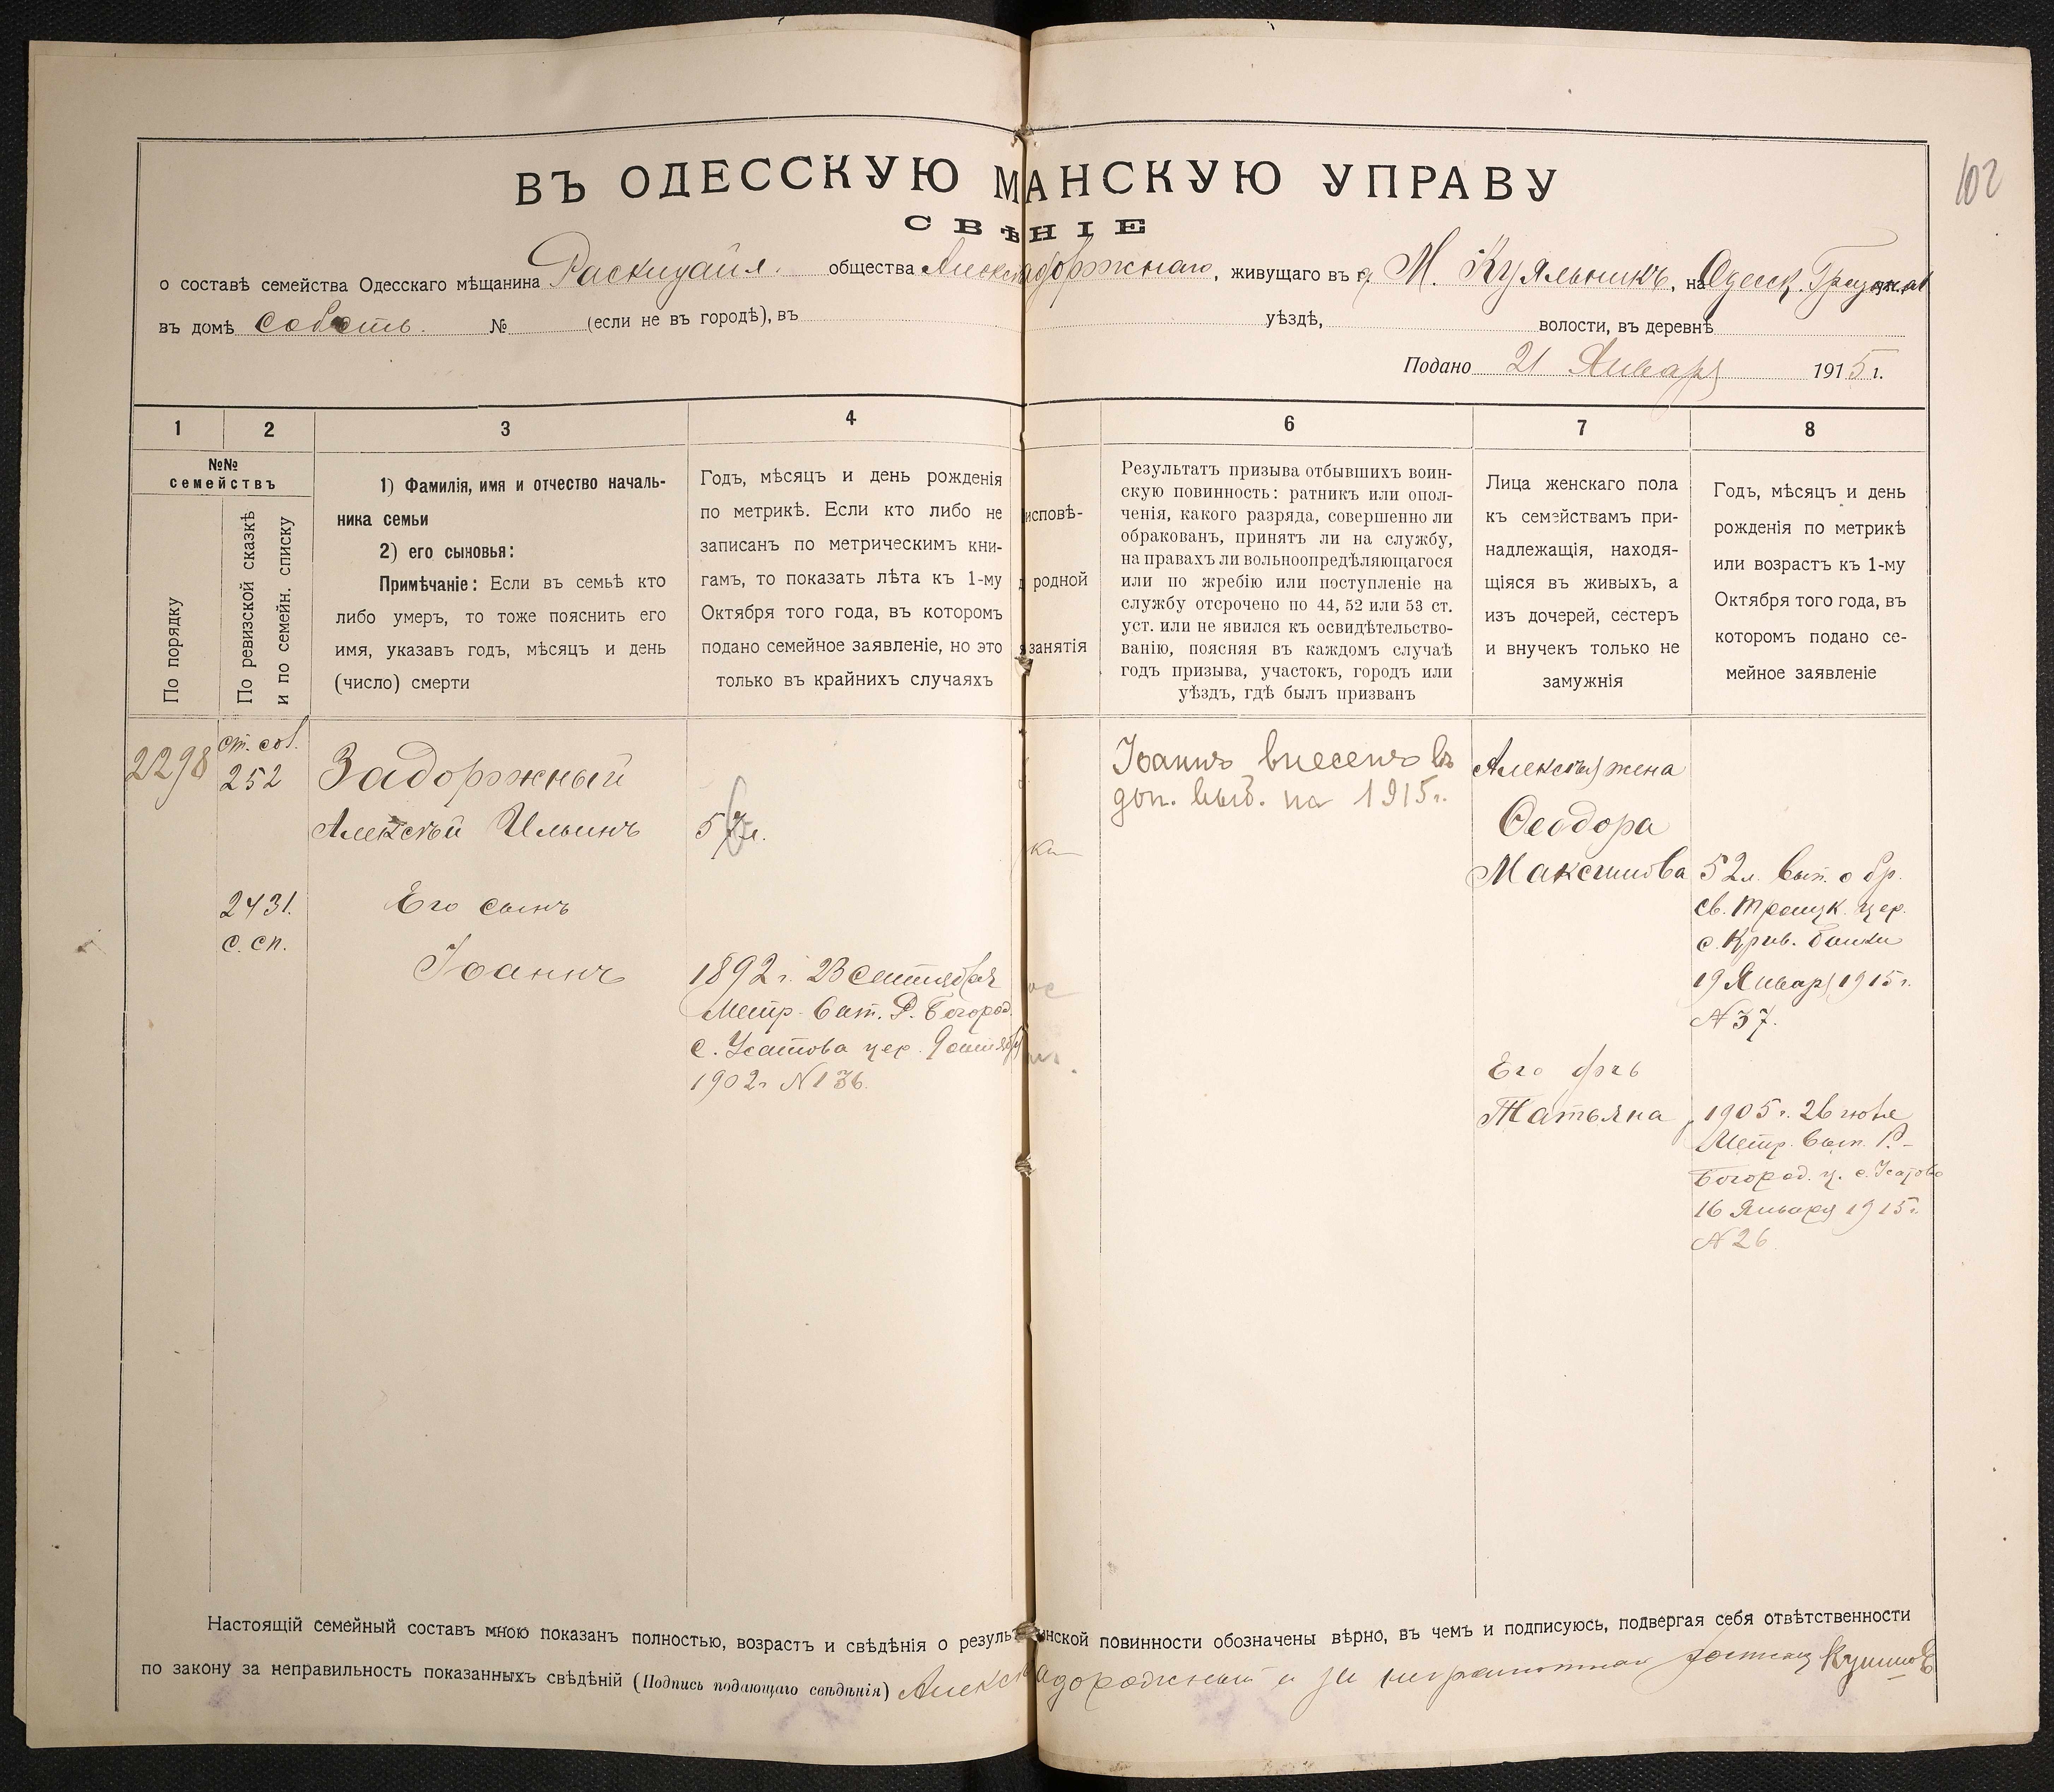 102
ВЪ ОДЕССКУЮ МАНСКУЮ УПРАВУ
СВѢНІЕ
о составѣ семейства Одесскаго мѣщанина общества живущаго въ г. М. Куяльникъ, на Одесск.
въ домѣ собств. № (если не въ городѣ), въ уѣздѣ, волости, въ деревнѣ
Подано 21 Января 1915 г.
1 2 3 4 6 7 8
№№
семействъ
По порядку
По ревизской сказкѣ
и по семейн. списку
1) Фамилія, имя и отчество началь-
ника семьи
2) его сыновья:
Примѣчаніе: Если въ семьѣ кто
либо умеръ, то тоже пояснить его
имя, указавъ годъ, мѣсяцъ и день
(число) смерти
Годъ, мѣсяцъ и день рожденія
по метрикѣ. Если кто либо не
записанъ по метрическимъ кни-
гамъ, то показать лѣта къ 1-му
Октября того года, въ которомъ
подано семейное заявленіе, но это
только въ крайнихъ случаяхъ
исповѣ-
родной
занятія
Результатъ призыва отбывшихъ воин-
скую повинность: ратникъ или опол-
ченія, какого разряда, совершенно ли
обракованъ, принятъ ли на службу,
на правахъ ли вольноопредѣляющагося
или по жребію или поступленіе на
службу отсрочено по 44, 52 или 53 ст.
уст. или не явился къ освидѣтельство-
ванію, поясняя въ каждомъ случаѣ
годъ призыва, участокъ, городъ или
уѣздъ, гдѣ былъ призванъ
Лица женскаго пола
къ семействамъ при-
надлежащія, находя-
щіяся въ живыхъ, а
изъ дочерей, сестеръ
и внучекъ только не
замужнія
Годъ, мѣсяцъ и день
рожденія по метрикѣ
или возрастъ къ 1-му
Октября того года, въ
которомъ подано се-
мейное заявленіе
2298
252
Задорожный
Алексѣй Ильинъ
2431.
с. сп.
Его сынъ
Іоаннъ
1892 г. 23 Сентября
Метр. Р. Богород.
с. Усатова цер.
1902 г. N 136.
Іоаннъ внесенъ въ
доп. на 1915 г.
Алексѣя жена
Ѳеодора
Максимова
52 л. Вып. о бр.
св. Троицк. цер.
с. Крив. Балки
19 Января 1915 г.
N 37.
Его
Татьяна
1905 г. 26
Метр. вып. Р-
Богород. ц. с. Усатово
16 Января 1915 г.
N 26
Настоящій семейный составъ мною показанъ полностью, возрастъ и свѣдѣнія о резуль нской повинности обозначены вѣрно, въ чемъ и подписуюсь, подвергая себя отвѣтственности
по закону за неправильность показанныхъ свѣдѣній (Подпись подающаго свѣдѣнія)